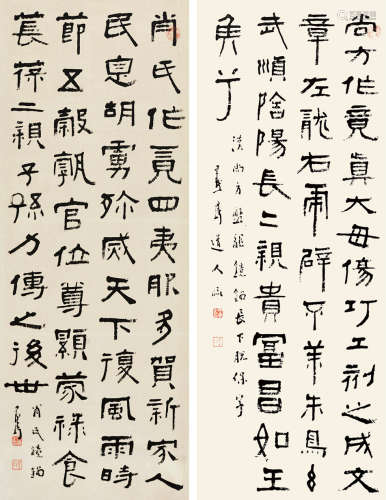 尚方作竟真大毋傷巧工刻之成文
章左龍右虎辟不羊朱鳥玄
武順陰陽長二親貴富昌如王
侯兮
漢尚方鏡銘長下脫保字
道人
肖氏作竟四夷服多賀新家人
民息胡虜殄滅天下復風雨時
節五穀孰官位尊顯蒙祿食
長葆二親子孫力傳之後世
肖氏鏡銘